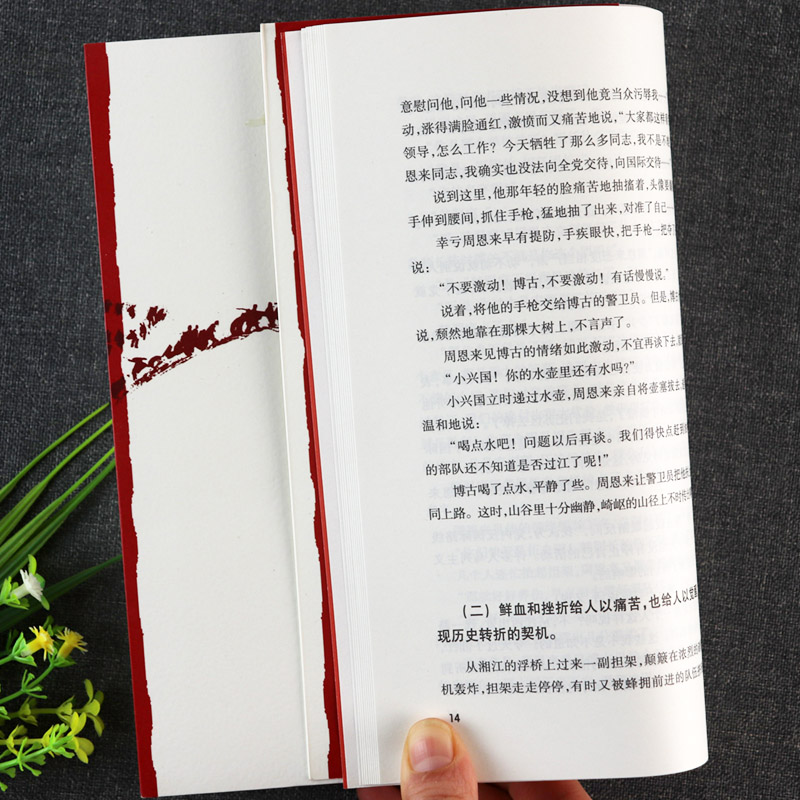 意慰问他，问他一些情况，没想到他竟当众污辱我…
动，涨得满脸通红，激愤而又痛苦地说，“大家都这样
领导，怎么工作？今天牺牲了那么多同志，我不是不
恩来同志，我确实也没法向全党交待，向国际交待…
说到这里，他那年轻的脸痛苦地抽搐着，头像
手伸到腰间，抓住手枪，猛地抽了出来，对准了自己…
幸亏周恩来早有提防，手疾眼快，把手枪一把夺
说：
“不要激动！博古，不要激动！有话慢慢说。”
说着，将他的手枪交给博古的警卫员。但是，博
说，颓然地靠在那棵大树上，不言声了。
周恩来见博古的情绪如此激动，不宜再谈下去，
“小兴国！你的水壶里还有水吗？”
小兴国立时递过水壶，周恩来亲自将壶塞拔去，
温和地说：
“喝点水吧！问题以后再谈。我们得快点赶到
的部队还不知道是否过江了呢！”
博古喝了点水，平静了些。周恩来让警卫员把他
同上路。这时，山谷里十分幽静，崎岖的山径上不时传
（二）鲜血和挫折给人以痛苦，也给人以觉
现历史转折的契机。
从湘江的浮桥上过来一副担架，颠簸在浓烈的
机轰炸，担架走走停停，有时又被蜂拥前进的队伍
14